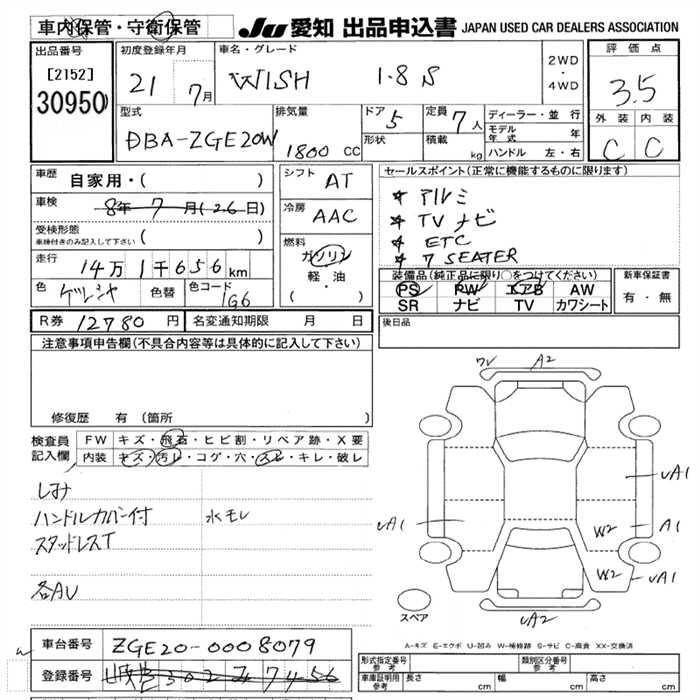 車内保管・守衛保管 JU 愛知 出品申込書 JAPAN USED CAR DEALERS ASSOCIATION
出品番号 初度登録年月 車名・グレード 評価点
[2152] 21 7月 WISH 1.8 S 2WD・4WD 3.5
30950
型式 排気量 ドア 5 定員 7人 ディーラー・並行 外装 内装
DBA-ZGE20W 1800 CC 形状 積載 kg モデル年式 年 C C
ハンドル 左・右
車歴 自家用・( ) シフト AT セールスポイント(正常に機能するものに限ります)
車検 8年 7月(26日) 冷房 AAC * アルミ
受検形態 * TV ナビ
車検付きのみ記入して下さい ( ) 燃料 * ETC
走行 14万1千656km ガソリン * 7 SEATER
色 色替 色コード 1G6 軽・油 装備品(純正品に限り○をつけてください) 新車保証書
( ・ ) PS PW エアB AW 有・無
SR ナビ TV カワシート
R券 12780円 名変通知期限 月 日 後日品
注意事項申告欄(不具合内容等は具体的に記入して下さい)
修復歴 有 (箇所
検査員記入欄 FW キズ・飛石・ヒビ割・リペア跡・X要
内装 キズ・汚レ・コゲ・穴・スレ・キレ・破レ
シミ
ハンドルカバー付 水モレ
スタッドレスT
各AU
A2
uA1
uA1 W2 A1
W2 uA1
スペア uA2
A-キズ E-エクボ U-凹み W-補修跡 S-サビ C-腐食 XX-交換済
車台番号 ZGE20-0008079
登録番号
型式指定番号 参考 類別区分番号 参考
車庫証明用 参考 長さ cm 幅 cm 高さ cm